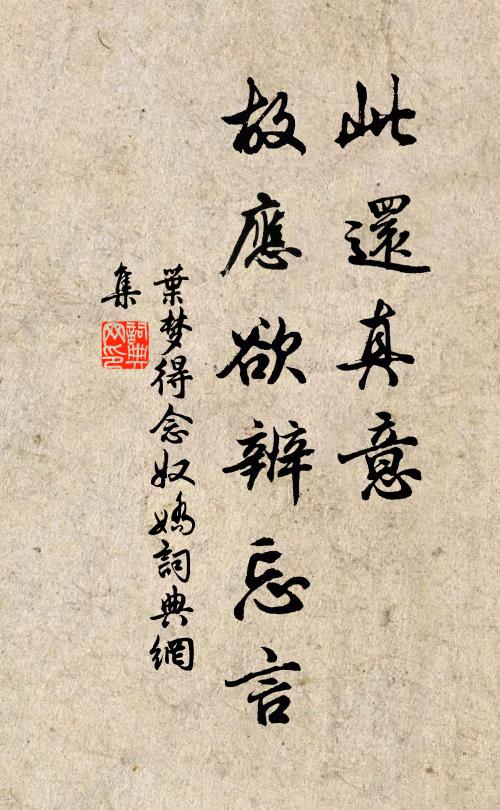 此還真意
故應欲辨忘言
葉梦得念奴嬌詞典網
集
詞典
网印